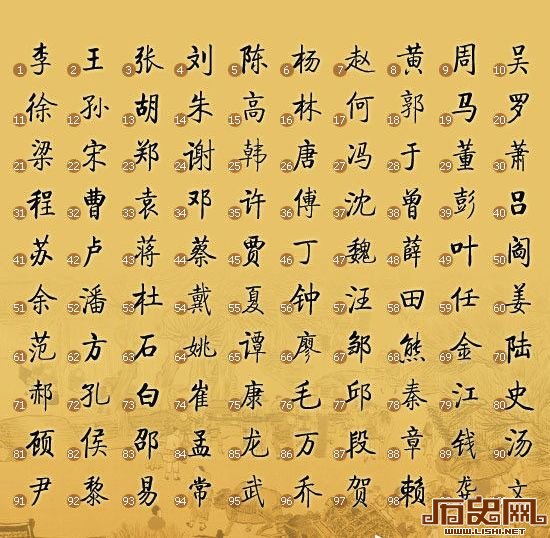 1李 2王 3张 4刘 5陈 6杨 7赵 8黄 9周 10吴
11徐 12孙 13胡 14朱 15高 16林 17何 18郭 19马 20罗
21梁 22宋 23郑 24谢 25韩 26唐 27冯 28于 29董 30萧
31程 32曹 33袁 34邓 35许 36傅 37沈 38曾 39彭 40吕
41苏 42卢 43蒋 44蔡 45贾 46丁 47魏 48薛 49叶 50阎
51余 52潘 53杜 54戴 55夏 56钟 57汪 58田 59任 60姜
61范 62方 63石 64姚 65谭 66廖 67邹 68熊 69金 70陆
71郝 72孔 73白 74崔 75康 76毛 77邱 78秦 79江 80史
81顾 82侯 83邵 84孟 85龙 86万 87段 88章 89钱 90汤
91尹 92黎 93易 94常 95武 96乔 97贺 98赖 龚 文
历史网
WWW.LISHI.NET